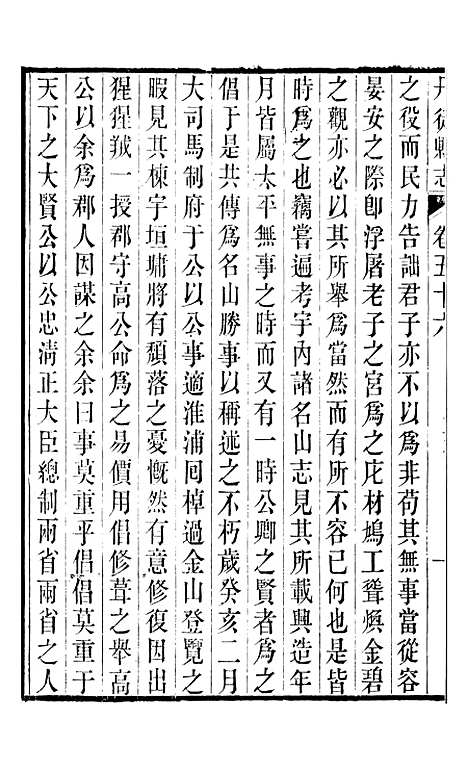 丹徒縣志 卷五十六
之役而民力告詘君子亦不以爲非苟其無事當從容
晏安之際卽浮屠老子之宮爲之庀材鳩工聳煥金碧
之觀亦必以其所舉爲當然而有所不容已何也是皆
時爲之也竊嘗遍考宇內諸名山志見其所載興造年
月皆屬太平無事之時而又有一時公卿之賢者爲之
倡于是共傳爲名山勝事以稱述之不朽歲癸亥二月
大司馬制府于公以公事適淮浦囘棹過金山登覽之
暇見其棟宇垣墉將有頽落之憂慨然有意修復因出
猩猩絨一授郡守高公命爲之易價用倡修葺之舉高
公以余爲郡人因謀之余余曰事莫重乎倡倡莫重于
天下之大賢公以公忠淸正大臣總制兩省兩省之人